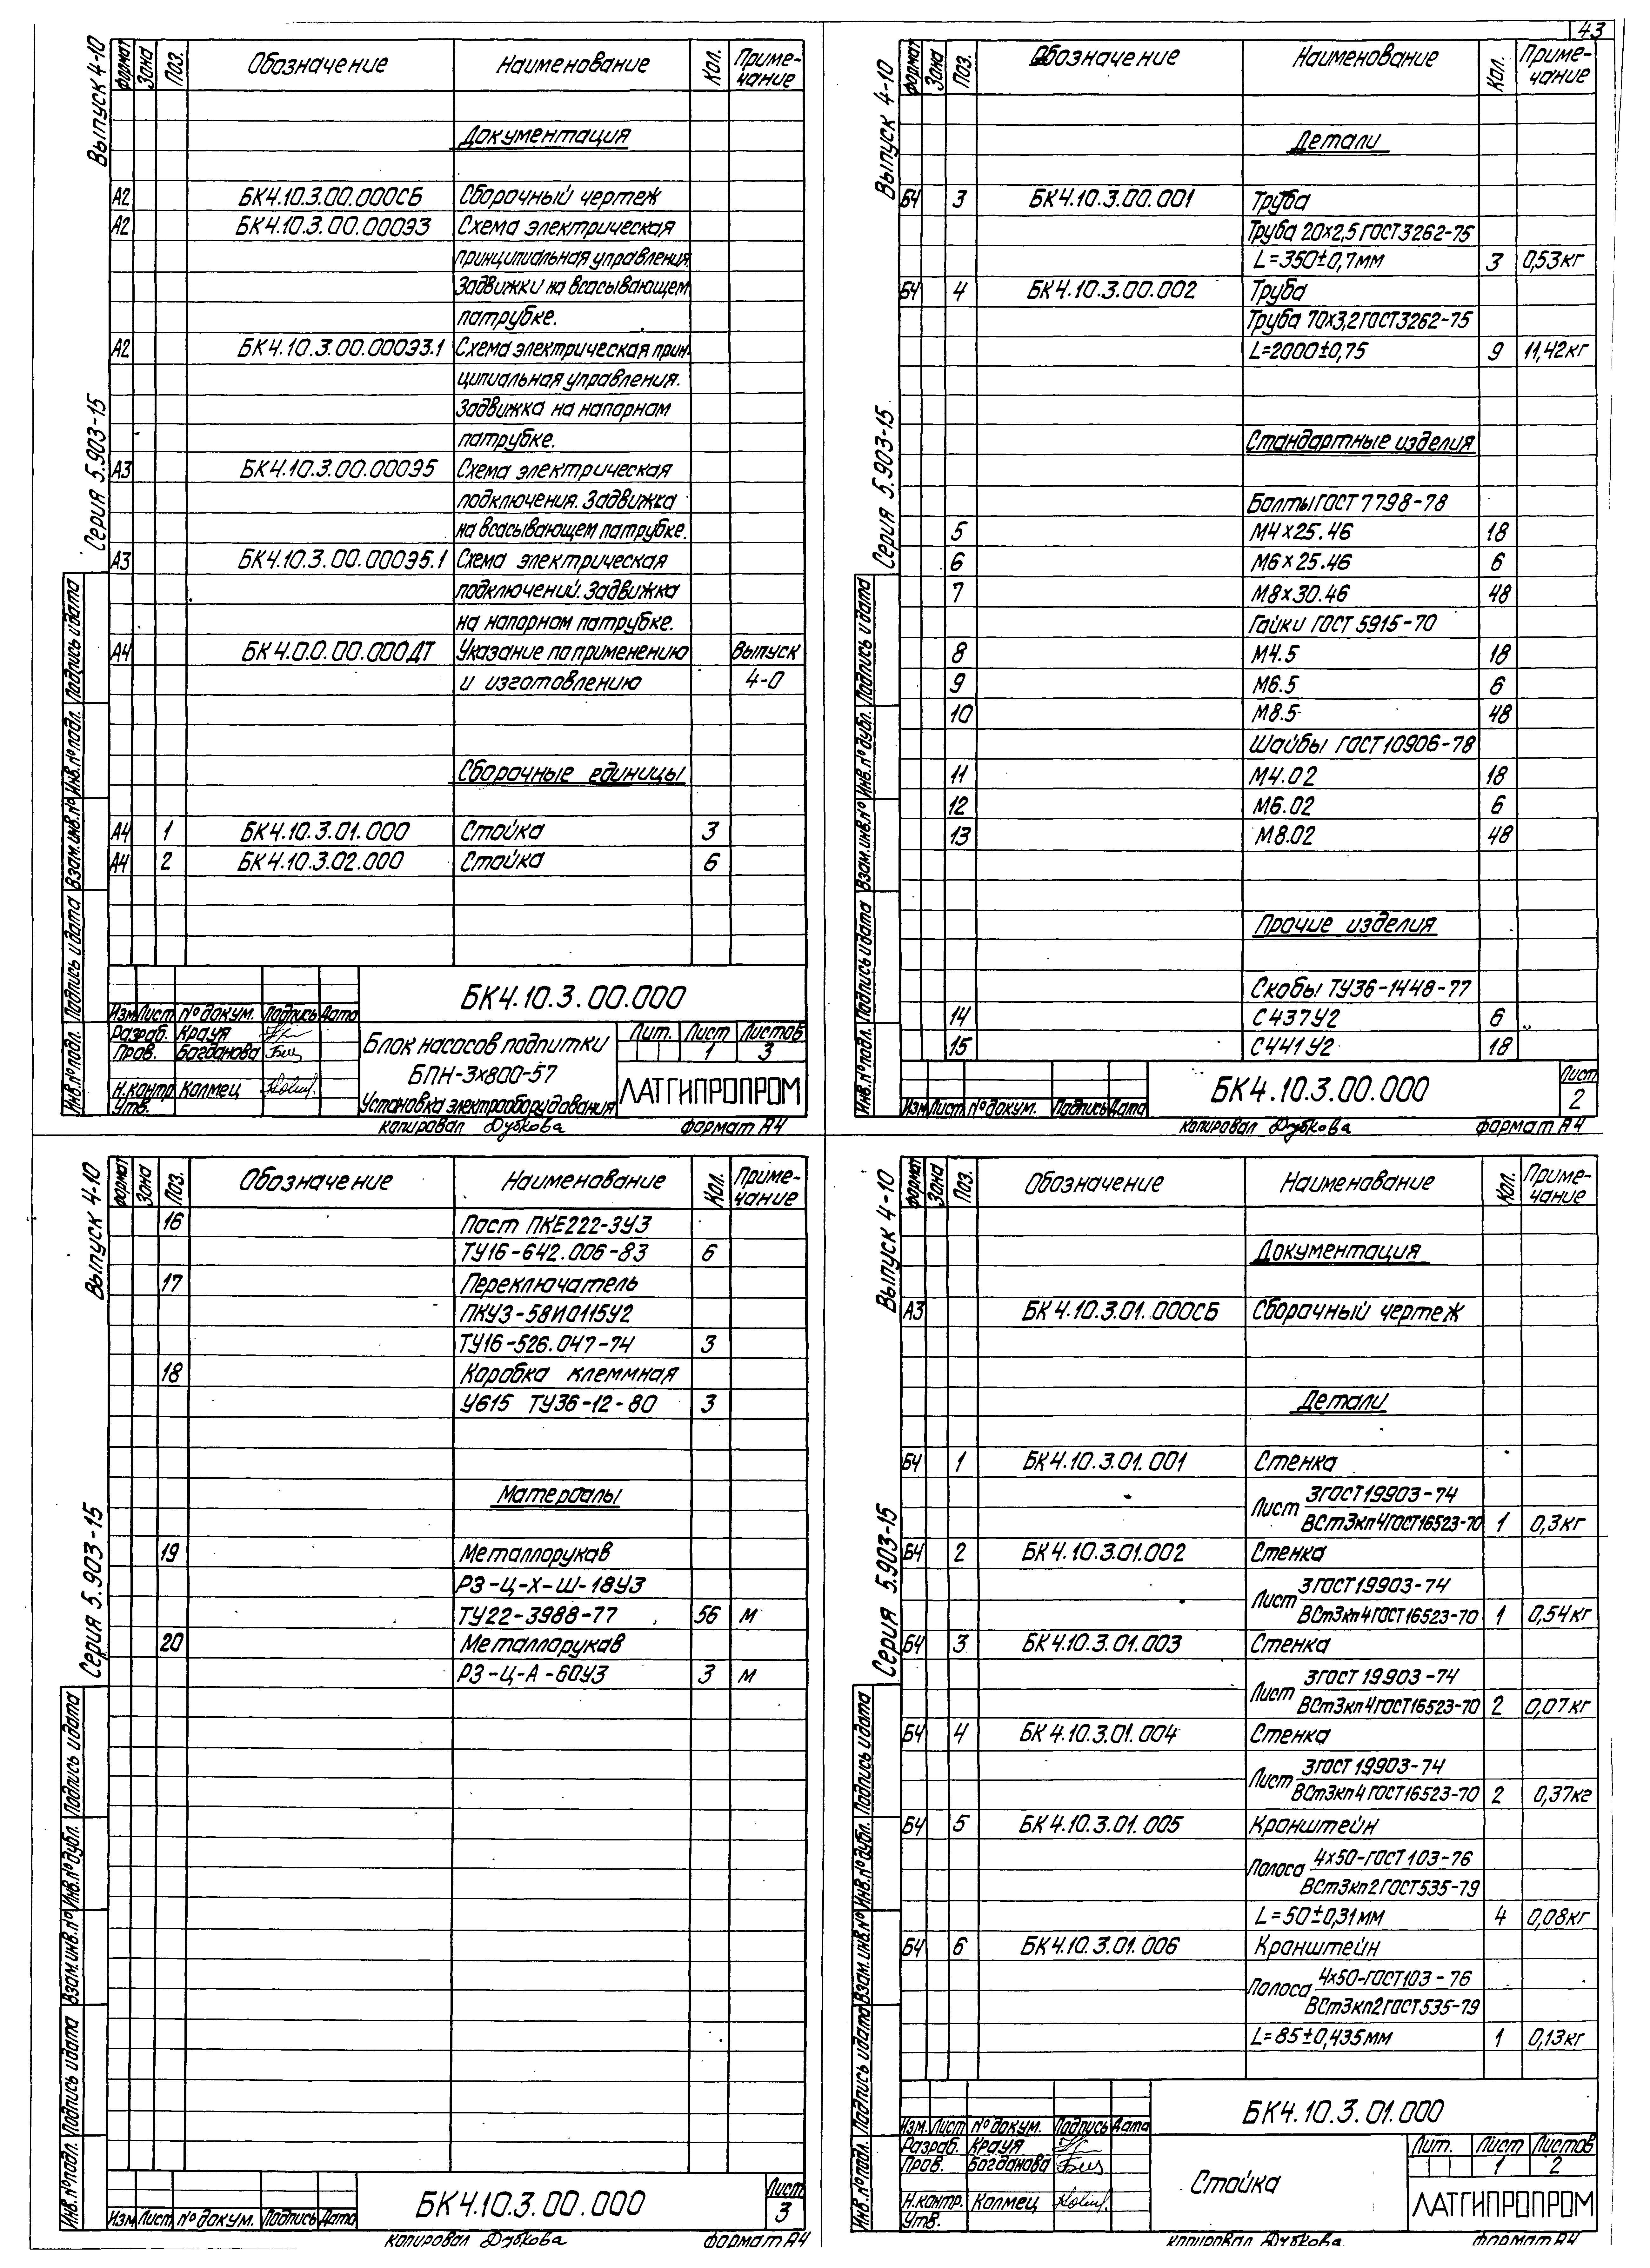 43
Выпуск 4-10
Серия 5.903-15
Формат Зона Поз. Обозначение Наименование Кол. Приме-
чание
Документация
А2 БК4.10.3.00.000СБ Сборочный чертеж
А2 БК4.10.3.00.000Э3 Схема электрическая
принципиальная управления.
Задвижки на всасывающем
патрубке.
А2 БК4.10.3.00.000Э3.1 Схема электрическая прин-
ципиальная управления.
Задвижка на напорном
патрубке.
А3 БК4.10.3.00.000Э5 Схема электрическая
подключения. Задвижка
на всасывающем патрубке.
А3 БК4.10.3.00.000Э5.1 Схема электрическая
подключений. Задвижка
на напорном патрубке.
А4 БК4.0.0.00.000ДТ Указание по применению Выпуск
и изготовлению 4-0
Сборочные единицы
А4 1 БК4.10.3.01.000 Стойка 3
А4 2 БК4.10.3.02.000 Стойка 6
Инв.№подл. Подпись и дата Взам.инв.№ Инв.№подл. Подпись и дата
БК4.10.3.00.000
Изм Лист №докум. Подпись Дата
Разраб. Крауя
Пров. Богданова
Н.контр. Колмец
Утв.
Блок насосов подпитки
БПН-3х800-57
Установка электрооборудования
Лит. Лист Листов
1 3
ЛАТГИПРОПРОМ
копировал Дубкова формат А4
Выпуск 4-10
Серия 5.903-15
Формат Зона Поз. Обозначение Наименование Кол. Приме-
чание
Детали
БЧ 3 БК4.10.3.00.001 Труба
Труба 20х2,5 ГОСТ3262-75
L=350±0,7мм 3 0,53кг
БЧ 4 БК4.10.3.00.002 Труба
Труба 70х3,2ГОСТ3262-75
L=2000±0,75 9 11,42кг
Стандартные изделия
Болты ГОСТ 7798-78
5 М4х25.46 18
6 М6х25.46 6
7 М8х30.46 48
Гайки ГОСТ 5915-70
8 М4.5 18
9 М6.5 6
10 М8.5 48
Шайбы ГОСТ10906-78
11 М4.02 18
12 М6.02 6
13 М8.02 48
Прочие изделия
Скобы ТУ36-1448-77
14 С437У2 6
15 С441У2 18
Инв.№подл. Подпись и дата Взам.инв.№ Инв.№дубл. Подпись и дата
Изм Лист №докум. Подпись Дата
БК4.10.3.00.000
Лист
2
копировал Дубкова формат А4
Выпуск 4-10
Серия 5.903-15
Формат Зона Поз. Обозначение Наименование Кол. Приме-
чание
16 Пост ПКЕ222-3У3
ТУ16-642.006-83 6
17 Переключатель
ПКУ3-58И0115У2
ТУ16-526.047-74 3
18 Коробка клеммная
У615 ТУ36-12-80 3
Материалы
19 Металлорукав
РЗ-Ц-Х-Ш-18У3
ТУ22-3988-77 56 м
20 Металлорукав
РЗ-Ц-А-60У3 3 м
Инв.№подл. Подпись и дата Взам.инв.№ Инв.№дубл. Подпись и дата
Изм Лист №докум. Подпись Дата
БК4.10.3.00.000
Лист
3
копировал Дубкова формат А4
Выпуск 4-10
Серия 5.903-15
Формат Зона Поз. Обозначение Наименование Кол. Приме-
чание
Документация
А3 БК4.10.3.01.000СБ Сборочный чертеж
Детали
БЧ 1 БК4.10.3.01.001 Стенка
Лист 3ГОСТ19903-74
ВСт3кп4ГОСТ16523-70 1 0,3кг
БЧ 2 БК4.10.3.01.002 Стенка
Лист 3ГОСТ19903-74
ВСт3кп4ГОСТ16523-70 1 0,54кг
БЧ 3 БК4.10.3.01.003 Стенка
Лист 3ГОСТ19903-74
ВСт3кп4ГОСТ16523-70 2 0,07кг
БЧ 4 БК4.10.3.01.004 Стенка
Лист 3ГОСТ19903-74
ВСт3кп4ГОСТ16523-70 2 0,37кг
БЧ 5 БК4.10.3.01.005 Кронштейн
Полоса 4х50-ГОСТ103-76
ВСт3кп2ГОСТ535-79
L=50±0,31мм 4 0,08кг
БЧ 6 БК4.10.3.01.006 Кронштейн
Полоса 4х50-ГОСТ103-76
ВСт3кп2ГОСТ535-79
L=85±0,435мм 1 0,13кг
Инв.№подл. Подпись и дата Взам.инв.№ Инв.№дубл. Подпись и дата
БК4.10.3.01.000
Изм. Лист №докум. Подпись Дата
Разраб. Крауя
Пров. Богданова
Н.контр. Колмец
Утв.
Стойка
Лит. Лист Листов
1 2
ЛАТГИПРОПРОМ
копировал Дубкова формат А4